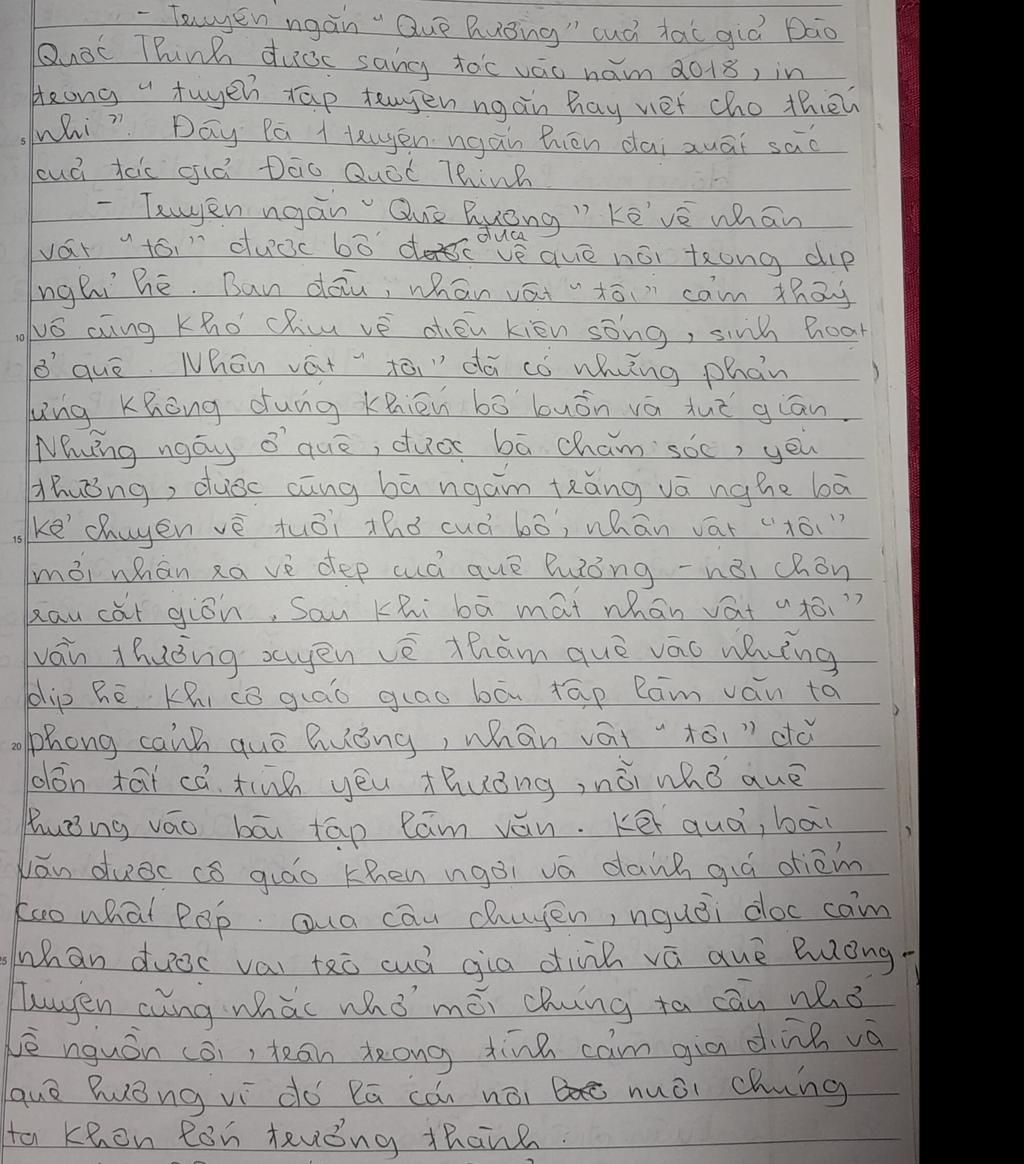 - Truyện ngắn "Quê hương" của tác giả Đào
Quốc Thịnh được sáng tác vào năm 2018, in
trong "tuyển tập truyện ngắn hay viết cho thiếu
5 nhi". Đây là 1 truyện ngắn hiện đại xuất sắc
của tác giả Đào Quốc Thịnh
- Truyện ngắn "Quê hương" kể về nhân
vật "tôi" được bố đưa về quê nội trong dịp
nghỉ hè. Ban đầu, nhân vật "tôi" cảm thấy
10 vô cùng khó chịu về điều kiện sống, sinh hoạt
ở quê. Nhân vật "tôi" đã có những phản
ứng không đúng khiến bố buồn và tức giận.
Những ngày ở quê, được bà chăm sóc, yêu
thương, được cùng bà ngắm trăng và nghe bà
15 kể chuyện về tuổi thơ của bố, nhân vật "tôi"
mới nhận ra vẻ đẹp của quê hương - nơi chôn
rau cắt giốn. Sau khi bà mất nhân vật "tôi"
vẫn thường xuyên về thăm quê vào những
dịp hè. Khi cô giáo giao bài tập làm văn tả
20 phong cảnh quê hương, nhân vật "tôi" đã
dồn tất cả tình yêu thương, nỗi nhớ quê
hương vào bài tập làm văn. Kết quả, bài
văn được cô giáo khen ngợi và đánh giá điểm
cao nhất lớp. Qua câu chuyện, người đọc cảm
25 nhận được vai trò của gia đình và quê hương.
Truyện cũng nhắc nhở mỗi chúng ta cần nhớ
về nguồn cội, trân trọng tình cảm gia đình và
quê hương vì đó là cái nôi nuôi chúng
ta khôn lớn trưởng thành.